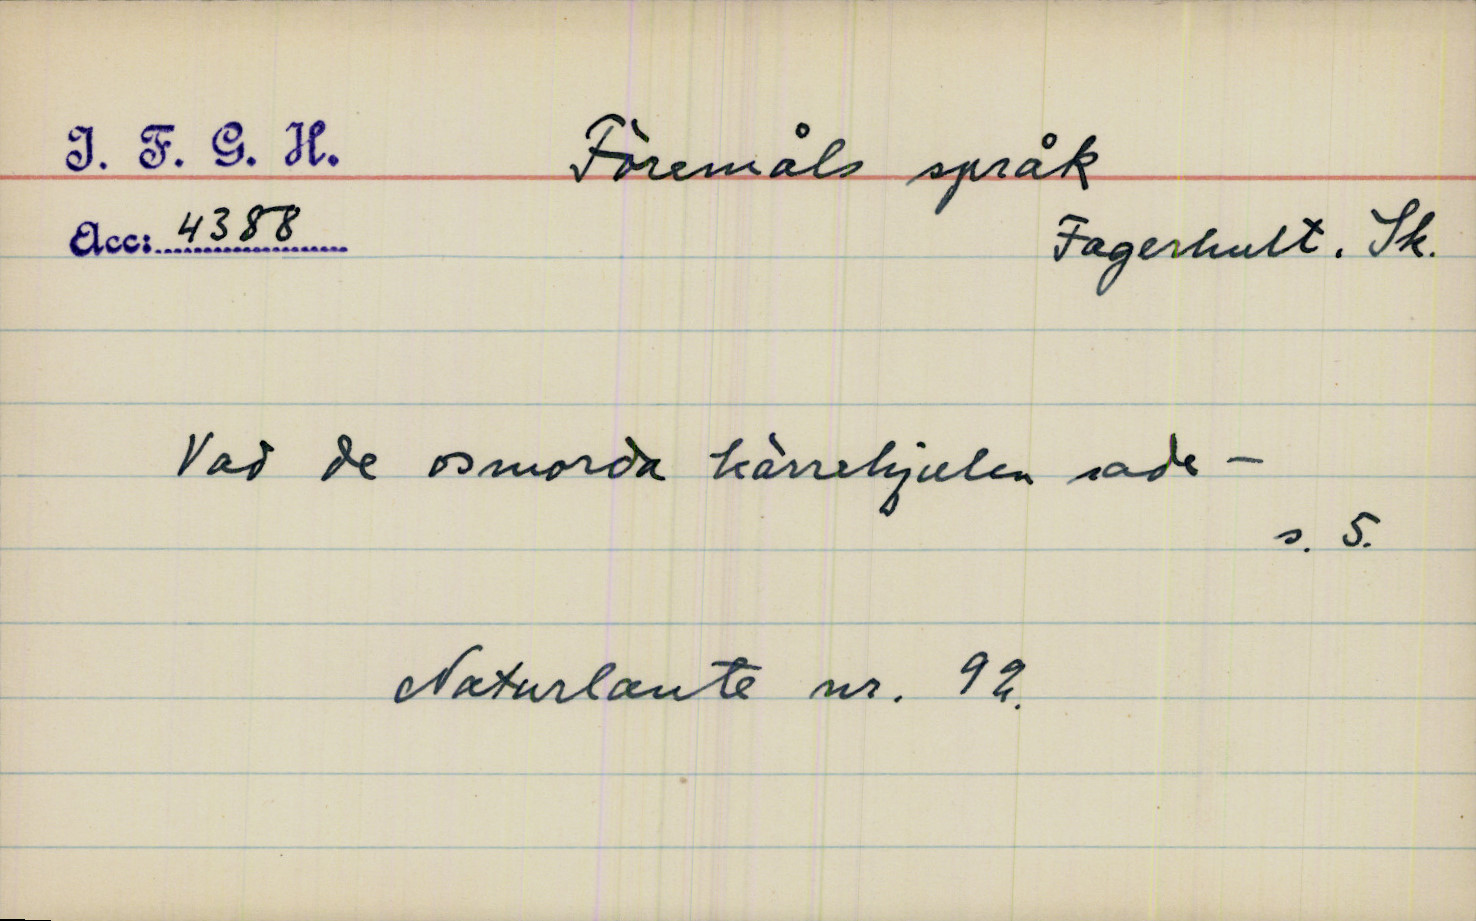 I. F. G. H.
Föremåls språk
Acc: 4388
Fagerhult. Sk.
Vad de osmorda kärrehjulen sade –
s. 5.
Naturlaute nr. 92.